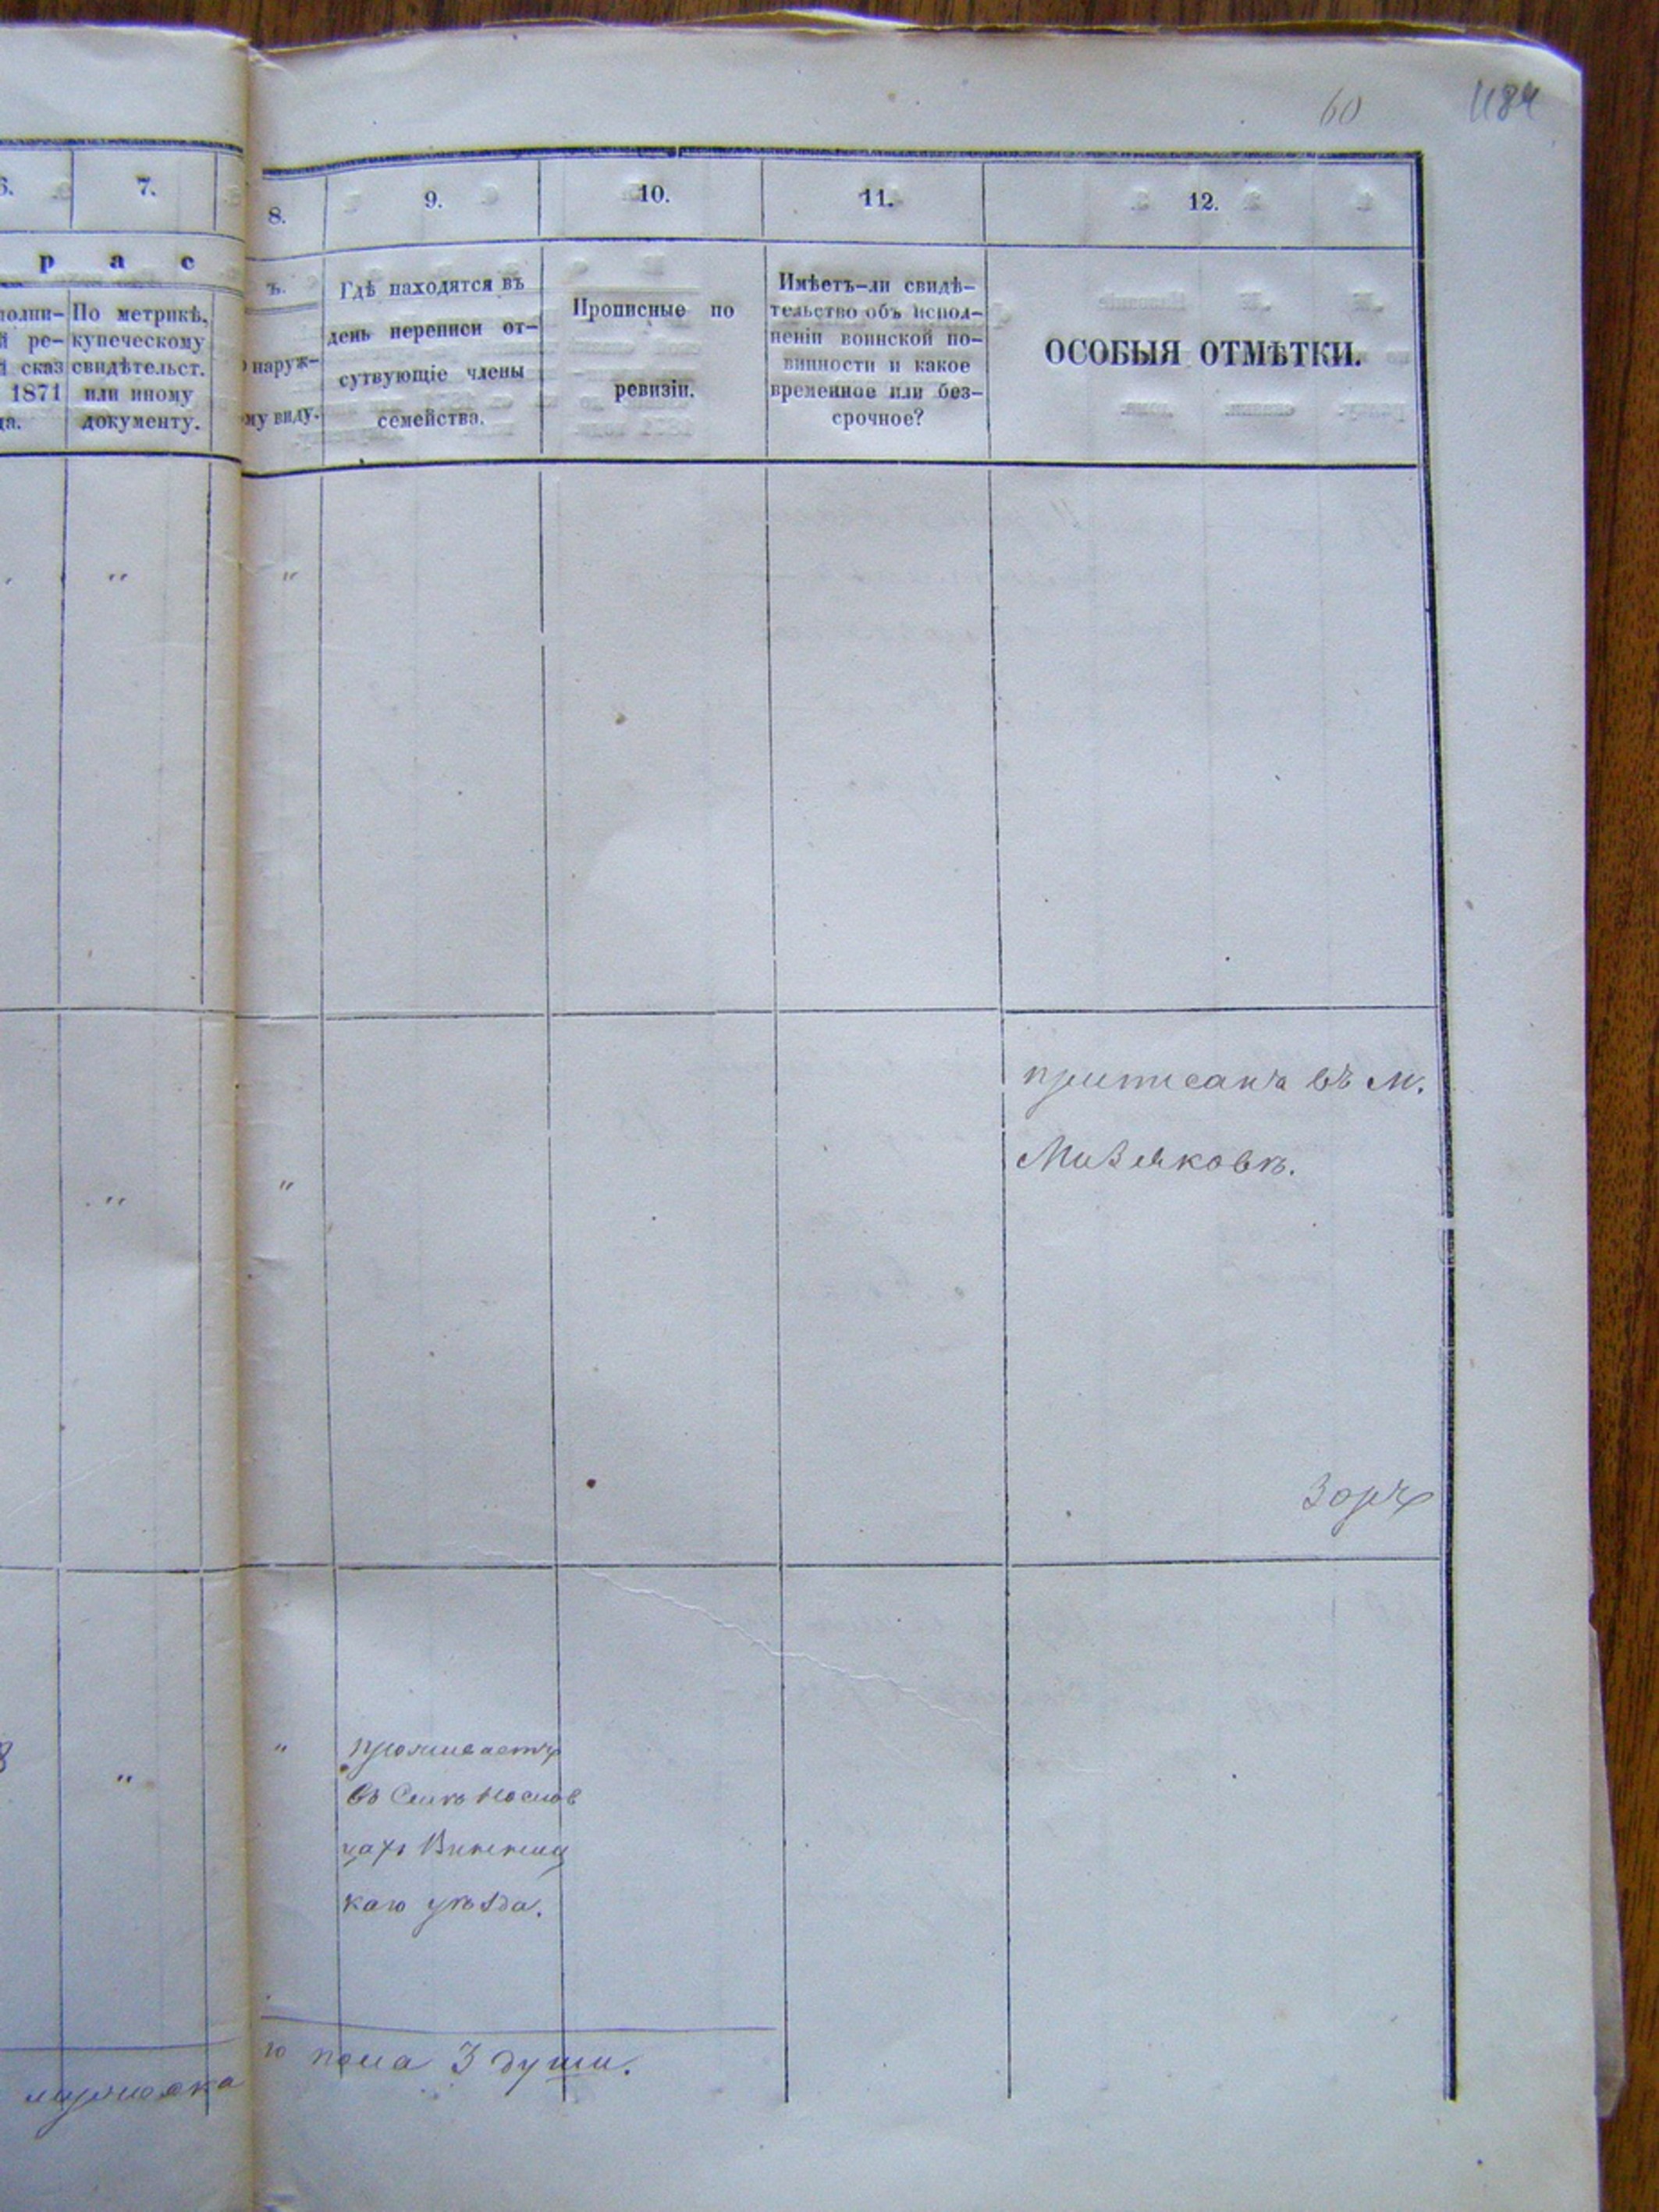 60 484
6. 7. 8. 9. 10. 11. 12.
р а с
ъ.
полни-
й ре-
й сказ
1871
да.
По метрикѣ,
купеческому
свидѣтельст.
или иному
документу.
о наруж-
му виду.
Гдѣ находятся въ
день переписи от-
сутвующіе члены
семейства.
Прописные по
ревизіи.
Имѣетъ-ли свидѣ-
тельство объ испол-
неніи воинской по-
винности и какое
временное или без-
срочное?
ОСОБЫЯ ОТМѢТКИ.
" "
приписанъ въ М.
Мизяковѣ.
" "
8 " "
проживаетъ
въ Селѣ
цахъ Винниц
каго уѣзда.
го пола 3 души.